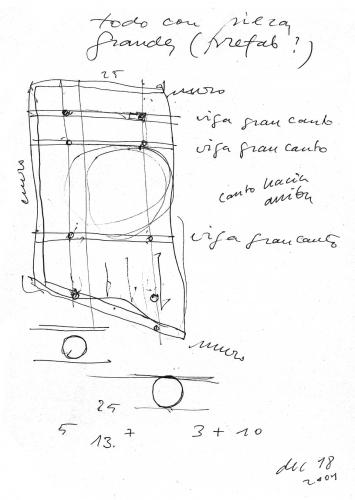 todo con pieza
grandes (prefab?)
25
muro
viga gran canto
viga gran canto
muro
canto hacia
arriba
viga gran canto
muro
25
5
13.7
3 + 10
dec 18
2001